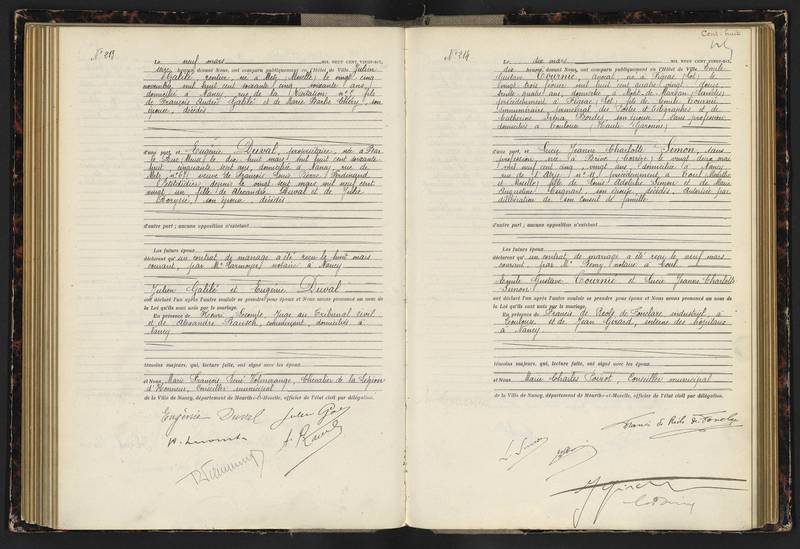 N° 213
Le neuf mars MIL NEUF CENT VINGT-SIX,
heures, devant Nous, ont comparu publiquement en l'Hôtel de Ville, Julien
Galilé, rentier, né à Metz (Moselle) le vingt cinq
novembre mil huit cent soixante cinq, soixante ans,
domicilié à Nancy, rue de la Visitation n° fils
de François André Galilé et de Marie Barbe son
épouse, décédés
d'une part, et Eugénie Duval, propriétaire, née à
le dix huit mars mil huit cent soixante
huit, cinquante sept ans, domiciliée à Nancy, rue de
Metz n° veuve de François Louis Pierre Ferdinand
depuis le vingt sept mars mil neuf cent
vingt un, fille de Alexandre Duval et de Julie
son épouse, décédés
d'autre part ; aucune opposition n'existant
Les futurs époux
déclarent qu'un contrat de mariage a été reçu le huit mars
courant, par Me notaire à Nancy
Julien Galilé et Eugénie Duval
ont déclaré l'un après l'autre vouloir se prendre pour époux et Nous avons prononcé au nom de
la Loi qu'ils sont unis par le mariage.
En présence de Henri Lecomte, Juge au Tribunal civil
et de Alexandre Rausch, commerçant, domiciliés à
Nancy
témoins majeurs, qui, lecture faite, ont signé avec les époux
et Nous, Marie François René Chevalier de la Légion
d'Honneur, Conseiller municipal
de la Ville de Nancy, département de Meurthe-et-Moselle, officier de l'état civil par délégation.
Eugénie Duval
N° 214
Cent-huit
Le dix mars MIL NEUF CENT VINGT-SIX,
dix heures, devant Nous, ont comparu publiquement en l'Hôtel de Ville, Emile
Gustave Cournié, avocat, né à Figeac (Lot) le
vingt trois février mil huit cent quatre vingt douze,
trente quatre ans, domicilié à Mont-de-Marsan (Landes)
précédemment à Figeac (Lot), fils de Emile Cournié
des Postes et Télégraphes et de
Catherine Bordes, son épouse, sans profession,
domiciliés à Toulouse (Haute Garonne)
d'une part, et Lucie Jeanne Charlotte Simon, sans
profession, née à Brive (Corrèze) le vingt deux mai
mil neuf cent cinq, vingt ans, domiciliée à Nancy,
rue de précédemment à Toul (Meurthe
et Moselle) fille de Louis Adolphe Simon et de Marie
Augustine son épouse, décédés. Autorisée par
délibération de son Conseil de famille
d'autre part ; aucune opposition n'existant
Les futurs époux
déclarent qu'un contrat de mariage a été reçu le neuf mars
courant, par Me Rémy, notaire à Toul
Emile Gustave Cournié et Lucie Jeanne Charlotte
Simon
ont déclaré l'un après l'autre vouloir se prendre pour époux et Nous avons prononcé au nom de
la Loi qu'ils sont unis par le mariage.
En présence de Francis de industriel à
Toulouse et de Jean Girard, interne des hôpitaux
à Nancy
témoins majeurs, qui, lecture faite, ont signé avec les époux
et Nous, Marie Charles Poirot, Conseiller municipal
de la Ville de Nancy, département de Meurthe-et-Moselle, officier de l'état civil par délégation.
L. Simon